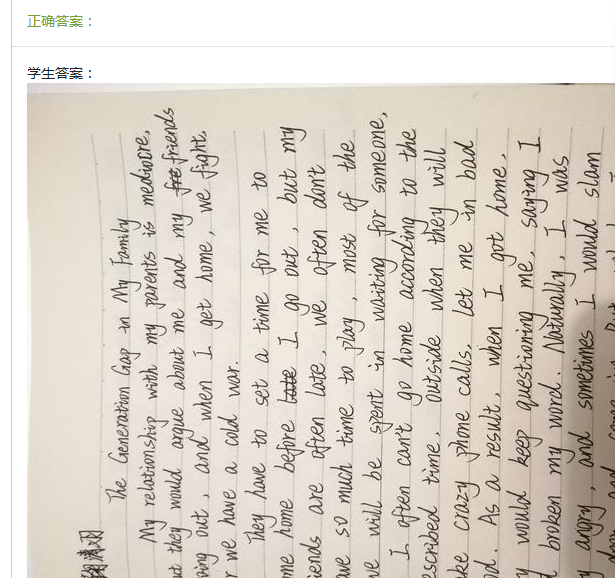 正确答案：
学生答案：
The Generation Gap in My Family
My relationship with my parents is mediocre,
ut they would argue about me and my friends
ving out, and when I get home, we fight.
r we have a cold war.
They have to set a time for me to
me home before I go out, but my
iends are often late, we often don't
ave so much time to play, most of the
e will be spent in waiting for someone,
I often can't go home according to the
escribed time, outside when they will
ke crazy phone calls, let me in bad
d. As a result, when I got home,
y would keep questioning me, saying I
broken my word. Naturally, I was
y angry, and sometimes I would slam